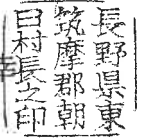 長野県東
筑摩郡朝
日村長之印